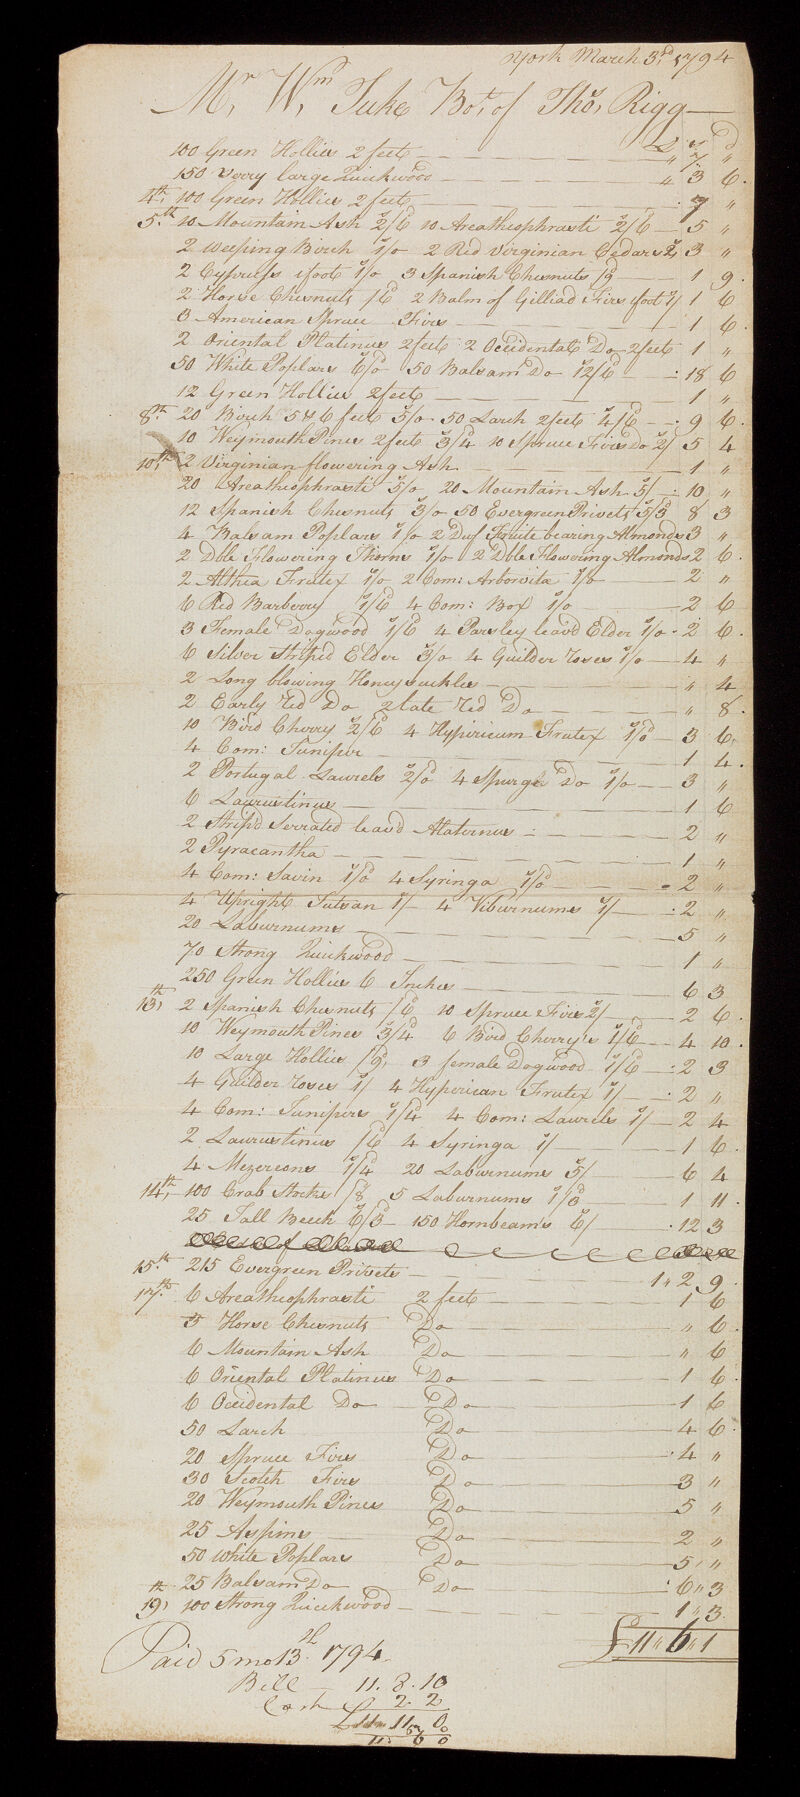 York March 3rd 1794
Mr. Wm. Tuke Bot. of Thos. Rigg
£ s d
100 Green Hollies 2 feet — " 7 "
150 Verry large Quickwood — " 3 6
4th, 100 Green Hollies 2 feet — 7 "
5th 10 Mountain Ash 2/6 10 Areatheophrasti 2/6 — 5 "
2 Weeping Birch 1/0 2 Red Virginian Cedars 2/ 3 "
2 Cypruss 1 foot 1/0 3 Spanish Chesnuts /9 — 1 9
2 Horse Chesnuts /6 2 Balm of Gilliad Firs 1 foot 1/ 1 6
3 American Spruce Firs — 1 6
2 Oriental Platinus 2 feet 2 Occidental Do 2 feet 1 "
50 White Poplars 6/0 50 Balsam Do 12/6 — 18 6
12 Green Hollies 2 feet — 1 "
8th 20 Birch 5 & 6 feet 5/0 50 Larch 2 feet 4/6 — 9 6
10 Weymouth Pines 2 feet 3/4 10 Spruce Firs Do 2/ 5 4
10th 2 Virginian flowering Ash — 1 "
20 Areatheophrasti 5/0 20 Mountain Ash 5/ — 10 "
12 Spanish Chesnuts 3/0 50 Evergreen Privets 5/3 8 3
4 Balsam Poplars 1/0 2 Dwf Fruite bearing Almonds 3 "
2 Dble Flowering Thorns 1/0 2 Dble Flowering Almonds 2 6
2 Althea Frutex 1/0 2 Com: Arborvita 1/0 — 2 "
6 Red Barberry 1/6 4 Com: Box 1/0 — 2 6
3 Female Dogwood 1/6 4 Parsley leav'd Elder 1/0 - 2 6
6 Silver Strip'd Elder 3/0 4 Guilder roses 1/0 — 4 "
2 Long blowing Honeysuckles — " 4
2 Early red Do 2 late red Do — " 8
10 Bird Cherry 2/6 4 Hypiricum Frutex 1/0 — 3 6
4 Com: Juniper — 1 4
2 Portugal Laurels 2/0 4 Spurge Do 1/0 — 3 "
6 Laurustinus — 1 6
2 Strip'd Serrated leav'd Alaternus — 2 "
2 Pyracantha — 1 "
4 Com: Savin 1/0 4 Syringa 1/0 — 2 "
4 Upright Tutsan 1/ 4 Viburnums 1/ — 2 "
20 Laburnums — 5 "
70 Strong Quickwood — 1 "
250 Green Hollies 6 Inches — 6 3
13th, 2 Spanish Chesnuts /6 10 Spruce Firs 2/ — 2 6
10 Weymouth Pines 3/4 6 Bird Cherry's 1/6 — 4 10
10 Large Hollies /9, 3 female Dogwood 1/6 — 2 3
4 Guilder roses 1/ 4 Hyperican Frutex 1/ — 2 "
4 Com: Junipers 1/4 4 Com: Laurels 1/ — 2 4
2 Laurustinus /6 4 Syringa 1/ — 1 6
4 Mezereons 1/4 20 Laburnums 5/ — 6 4
14th, 100 Crab Stocks /8 5 Laburnums 1/3 — 1 11
25 Tall Beech 6/3 150 Hornbeams 6/ — 12 3
15th 215 Evergreen Privets — 1 " 2 9
17th 6 Areatheophrasti 2 feet — 1 6
5 Horse Chesnuts Do — " 6
6 Mountain Ash Do — " 6
6 Oriental Platinus Do — 1 6
6 Occidental Do Do — 1 6
50 Larch Do — 4 6
20 Spruce Firs Do — 4 "
30 Scotch Firs Do — 3 "
20 Weymouth Pines Do — 5 "
25 Aspins Do — 2 "
50 White Poplars Do — 5 "
25 Balsam Do Do — 6 " 3
19th, 100 Strong Quickwood — 1 " 3
£11 " 6 " 1
Paid 5 mo 13th 1794
Bill — 11. 8. 10
2. 2
11 11 0
11. 6 0